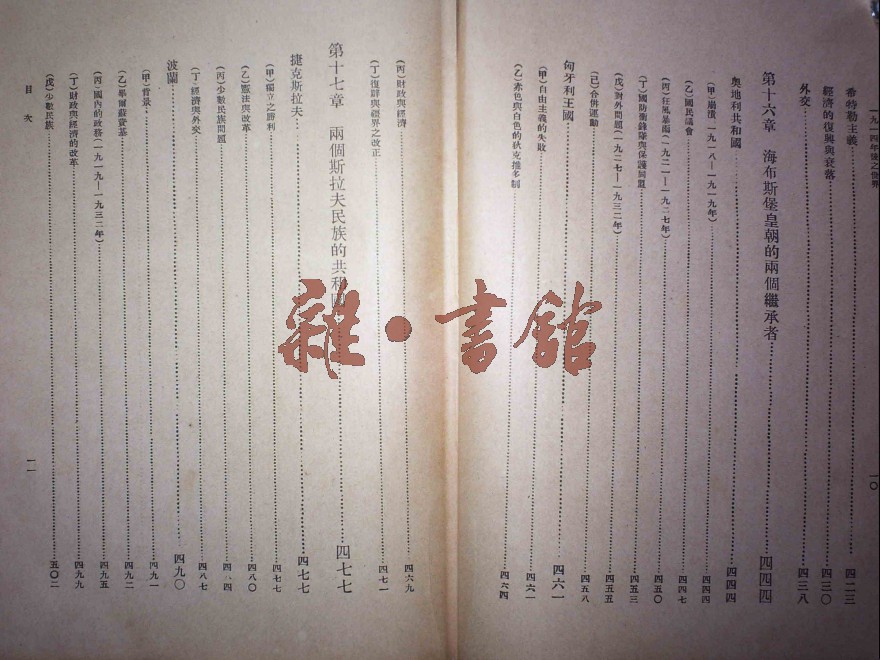 一九一四年後之世界
一〇
希特勒主義 四二三
經濟的復興與衰落 四三〇
外交 四三八
第十六章 海布斯堡皇朝的兩個繼承者 四四四
奧地利共和國 四四四
(甲)崩潰，一九一八—一九一九年) 四四四
(乙)國民議會 四四七
(丙)狂風暴雨(一九二一—一九二七年) 四五〇
(丁)國防衝鋒隊與保護同盟 四五三
(戊)對外問題(一九二七—一九三二年) 四五五
(己)合併運動 四五八
匈牙利王國 四六一
(甲)自由主義的失敗 四六一
(乙)赤色與白色的狄克推多制 四六四
(丙)財政與經濟 四六九
(丁)復辟與疆界之改正 四七一
第十七章 兩個斯拉夫民族的共和國 四七七
捷克斯拉夫 四七七
(甲)獨立之勝利 四七七
(乙)憲法與改革 四八〇
(丙)少數民族問題 四八四
(丁)經濟與外交 四八七
波蘭 四九〇
(甲)背景 四九一
(乙)畢爾蘇資基 四九二
(丙)國內的政務(一九一九—一九三二年) 四九五
(丁)財政與經濟的改革 四九九
(戊)少數民族 五〇二
目次
一一
雜·書館